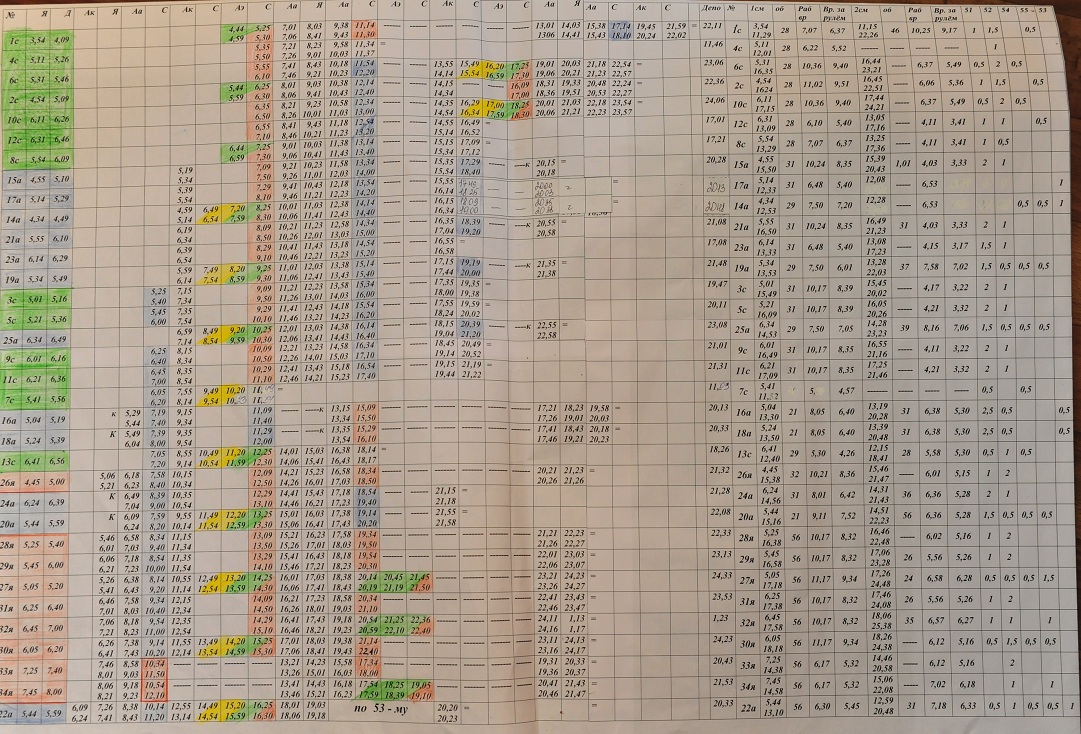 № Я Д Ак Я Аа С Ак С Аэ С Аа Я Ак С Аэ С Ак С Аэ С Аа Я Ак С Аа С Ак С Депо № 1см об Раб вр Вр. за рулём 2см об Раб вр Вр. за рулём 51 52 54 55 - 53
1с 3,54 4,09 4,44 5,25 7,01 8,03 9,38 11,14 13,01 14,03 15,38 17,14 19,45 21,59 = 22,11 1с 3,54 28 7,07 6,37 11,15 46 10,25 9,17 1 1,5 0,5
4,59 5,30 7,06 8,41 9,43 11,30 1306 14,41 15,43 18,10 20,24 22,02 11,29 22,26
4с 5,11 5,26 5,35 7,21 8,23 9,58 11,34 = 11,46 4с 5,11 28 6,22 5,52 1
5,50 7,26 9,01 10,03 11,37 12,01
6с 5,31 5,46 5,55 7,41 8,43 10,18 11,54 13,55 15,49 16,20 17,25 19,01 20,03 21,18 22,54 = 23,06 6с 5,31 28 10,36 9,40 16,44 6,37 5,49 0,5 2 0,5
6,10 7,46 9,21 10,23 12,20 14,14 15,54 16,59 17,30 19,06 20,21 21,23 22,57 16,35 23,21
2с 4,54 5,09 5,44 6,25 8,01 9,03 10,38 12,14 14,15 16,09 18,31 19,33 20,48 22,24 22,36 2с 4,54 28 11,02 9,51 16,45 6,06 5,36 1 1,5 0,5
5,59 6,30 8,06 9,41 10,43 12,40 14,34 17,00 18,36 19,51 20,53 22,27 1624 22,51
10с 6,11 6,26 6,35 8,21 9,23 10,58 12,34 14,35 16,29 17,00 18,25 20,01 21,03 22,18 23,54 = 24,06 10с 6,11 28 10,36 9,40 17,44 6,37 5,49 0,5 2 0,5
6,50 8,26 10,01 11,03 13,00 14,54 16,34 17,59 18,30 20,06 21,21 22,23 23,57 17,15 24,21
12с 6,31 6,46 6,55 8,41 9,43 11,18 12,54 14,55 16,49 = 17,01 12с 6,31 28 6,10 5,40 13,05 4,11 3,41 1 1 0,5
7,10 8,46 10,21 11,23 13,20 15,14 16,52 13,09 17,16
8с 5,54 6,09 6,44 7,25 9,01 10,03 11,38 13,14 15,15 17,09 = 17,21 8с 5,54 28 7,07 6,37 13,25 4,11 3,41 1 0,5
6,59 7,30 9,06 10,41 11,43 13,40 15,34 17,12 13,29 17,36
15а 4,55 5,10 5,19 7,09 9,21 10,23 11,58 13,34 15,35 17,29 к 20,15 = 20,28 15а 4,55 31 10,24 8,35 15,39 1,01 4,03 3,33 2 1
5,34 7,50 9,26 11,01 12,03 14,00 15,54 18,40 20,18 15,50 20,43
17а 5,14 5,29 5,39 7,29 9,41 10,43 12,18 13,54 15,55 17а 5,14 31 6,48 5,40 12,08 6,53 1
5,54 8,10 9,46 11,21 12,23 14,20 16,14 12,33
14а 4,34 4,49 4,59 6,49 7,20 8,25 10,01 11,03 12,38 14,14 16,15 14а 4,34 29 7,50 7,20 12,28 6,53 0,5 0,5 1
5,14 6,54 7,59 8,30 10,06 11,41 12,43 14,40 16,34 12,53
21а 5,55 6,10 6,19 8,09 10,21 11,23 12,58 14,34 16,35 18,39 к 20,55 = 21,08 21а 5,55 31 10,24 8,35 16,49 31 4,03 3,33 2 1
6,34 8,50 10,26 12,01 13,03 15,00 17,04 19,20 20,58 16,50 21,23
23а 6,14 6,29 6,39 8,29 10,41 11,43 13,18 14,54 16,55 = 17,08 23а 6,14 31 6,48 5,40 13,08 4,15 3,17 1,5 1
6,54 9,10 10,46 12,21 13,23 15,20 16,58 13,33 17,23
19а 5,34 5,49 5,59 7,49 8,20 9,25 11,01 12,03 13,38 15,14 17,15 19,19 к 21,35 = 21,48 19а 5,34 29 7,50 6,01 13,28 37 7,58 7,02 1,5 0,5 0,5 0,5
6,14 7,54 8,59 9,30 11,06 12,41 13,43 15,40 17,44 20,00 21,38 13,53 22,03
3с 5,01 5,16 5,25 7,15 9,09 11,21 12,23 13,58 15,34 17,35 19,35 = 19,47 3с 5,01 31 10,17 8,39 15,45 4,17 3,22 2 1
5,40 7,34 9,50 11,26 13,01 14,03 16,00 18,00 19,38 15,49 20,02
5с 5,21 5,36 5,45 7,35 9,29 11,41 12,43 14,18 15,54 17,55 19,59 = 20,11 5с 5,21 31 10,17 8,39 16,05 4,21 3,32 2 1
6,00 7,54 10,10 11,46 13,21 14,23 16,20 18,24 20,02 16,09 20,26
25а 6,34 6,49 6,59 8,49 9,20 10,25 12,01 13,03 14,38 16,14 18,15 20,39 к 22,55 = 23,08 25а 6,34 29 7,50 7,05 14,28 39 8,16 7,06 1,5 0,5 0,5 0,5
7,14 8,54 9,59 10,30 12,06 13,41 14,43 16,40 19,04 21,20 22,58 14,53 23,23
9с 6,01 6,16 6,25 8,15 10,09 12,21 13,23 14,58 16,34 18,45 20,49 = 21,01 9с 6,01 31 10,17 8,35 16,55 4,11 3,22 2 1
6,40 8,34 10,50 12,26 14,01 15,03 17,10 19,14 20,52 16,49 21,16
11с 6,21 6,36 6,45 8,35 10,29 12,41 13,43 15,18 16,54 19,15 21,19 = 21,31 11с 6,21 31 10,17 8,35 17,25 4,21 3,32 2 1
7,00 8,54 11,10 12,46 14,21 15,23 17,40 19,44 21,22 17,09 21,46
7с 5,41 5,56 6,05 7,55 9,49 10,20 7с 5,41 4,57 0,5 0,5
6,20 8,14 9,54
16а 5,04 5,19 к 5,29 7,19 9,15 11,09 к 13,15 15,09 17,21 18,23 19,58 = 20,13 16а 5,04 21 8,05 6,40 13,19 31 6,38 5,30 2,5 0,5 0,5
5,44 7,40 9,34 11,40 13,34 15,50 17,26 19,01 20,03 13,30 20,28
18а 5,24 5,39 К 5,49 7,39 9,35 11,29 к 13,35 15,29 17,41 18,43 20,18 = 20,33 18а 5,24 21 8,05 6,40 13,39 31 6,38 5,30 2,5 0,5 0,5
6,04 8,00 9,54 12,00 13,54 16,10 17,46 19,21 20,23 13,50 20,48
13с 6,41 6,56 7,05 8,55 10,49 11,20 12,25 14,01 15,03 16,38 18,14 = 18,26 13с 6,41 29 5,30 4,26 12,15 28 5,58 5,30 0,5 1 0,5
7,20 9,14 10,54 11,59 12,30 14,06 15,41 16,43 18,17 12,40 18,41
26я 4,45 5,00 5,06 6,18 7,58 10,15 12,09 14,21 15,23 16,58 18,34 20,21 21,23 = 21,32 26я 4,45 32 10,21 8,36 15,46 6,01 5,15 1 2
5,21 6,23 8,40 10,34 12,50 14,26 16,01 17,03 18,50 20,26 21,26 15,38 21,47
24а 6,24 6,39 К 6,49 8,39 10,35 12,29 14,41 15,43 17,18 18,54 21,15 = 21,28 24а 6,24 31 8,01 6,42 14,31 36 6,36 5,28 2 1
7,04 9,00 10,54 13,10 14,46 16,21 17,23 19,40 21,18 14,56 21,43
20а 5,44 5,59 К 6,09 7,59 9,55 11,49 12,20 13,25 15,01 16,03 17,38 19,14 21,55 = 22,08 20а 5,44 21 9,11 7,52 14,51 56 6,36 5,28 1,5 0,5 0,5 0,5
6,24 8,20 10,14 11,54 12,59 13,30 15,06 16,41 17,43 20,20 21,58 15,16 22,23
28я 5,25 5,40 5,46 6,58 8,34 11,15 13,09 15,21 16,23 17,58 19,34 21,21 22,23 = 22,33 28я 5,25 56 10,17 8,32 16,46 6,02 5,16 1 2
6,01 7,03 9,40 11,34 13,50 15,26 17,01 18,03 19,50 21,26 22,27 16,38 22,48
29я 5,45 6,00 6,06 7,18 8,54 11,35 13,29 15,41 16,43 18,18 19,54 22,01 23,03 = 23,13 29я 5,45 56 10,17 8,32 17,06 26 5,56 5,26 1 2
6,21 7,23 10,00 11,54 14,10 15,46 17,21 18,23 20,30 22,06 23,07 16,58 23,28
27я 5,05 5,20 5,26 6,38 8,14 10,55 12,49 13,20 14,25 16,01 17,03 18,38 20,14 20,45 21,45 23,21 24,23 = 24,33 27я 5,05 56 11,17 9,34 17,26 24 6,58 6,28 0,5 0,5 0,5 1,5
5,41 6,43 9,20 11,14 12,54 13,59 14,30 16,06 17,41 18,43 20,19 21,19 21,50 23,26 24,27 17,18 24,48
31я 6,25 6,40 6,46 7,58 9,34 12,15 14,09 16,21 17,23 18,58 20,34 22,41 23,43 = 23,53 31я 6,25 56 10,17 8,32 17,46 26 5,56 5,26 1 2
7,01 8,03 10,40 12,34 14,50 16,26 18,01 19,03 21,10 22,46 23,47 17,38 24,08
32я 6,45 7,00 7,06 8,18 9,54 12,35 14,29 16,41 17,43 19,18 20,54 21,25 22,36 24,11 1,13 = 1,23 32я 6,45 56 10,17 8,32 18,06 35 6,57 6,27 1 1 1
7,21 8,23 11,00 12,54 15,10 16,46 18,21 19,23 20,59 22,10 22,40 24,16 1,17 17,58 25,38
30я 6,05 6,20 6,26 7,38 9,14 11,55 13,49 14,20 15,25 17,01 18,03 19,38 21,14 23,11 24,13 = 24,23 30я 6,05 56 11,17 9,34 18,26 6,12 5,16 0,5 1,5 0,5 0,5
6,41 7,43 10,20 12,14 13,54 14,59 15,30 17,06 18,41 19,43 22,40 23,16 24,17 18,18 24,38
33я 7,25 7,40 7,46 8,58 10,34 13,21 14,23 15,58 17,34 19,31 20,33 = 20,43 33я 7,25 56 6,17 5,32 14,46 6,12 5,16 2
8,01 9,03 11,50 13,26 15,01 16,03 18,00 19,36 20,37 14,38 20,58
34я 7,45 8,00 8,06 9,18 10,54 13,41 14,43 16,18 17,54 18,25 19,05 20,41 21,43 = 21,53 34я 7,45 56 6,17 5,32 15,06 7,02 6,18 1 1
8,21 9,23 12,10 13,46 15,21 16,23 17,59 18,39 19,10 20,46 21,47 14,58 22,08
22а 5,44 5,59 6,09 7,26 8,38 10,14 12,55 14,49 15,20 16,25 18,01 19,03 по 53 -му 20,20 = 20,33 22а 5,44 56 6,30 5,45 12,59 31 7,18 6,33 0,5 1 0,5 0,5 1
6,24 7,41 8,43 11,20 13,14 14,54 15,59 16,30 18,06 19,18 20,23 13,10 20,48